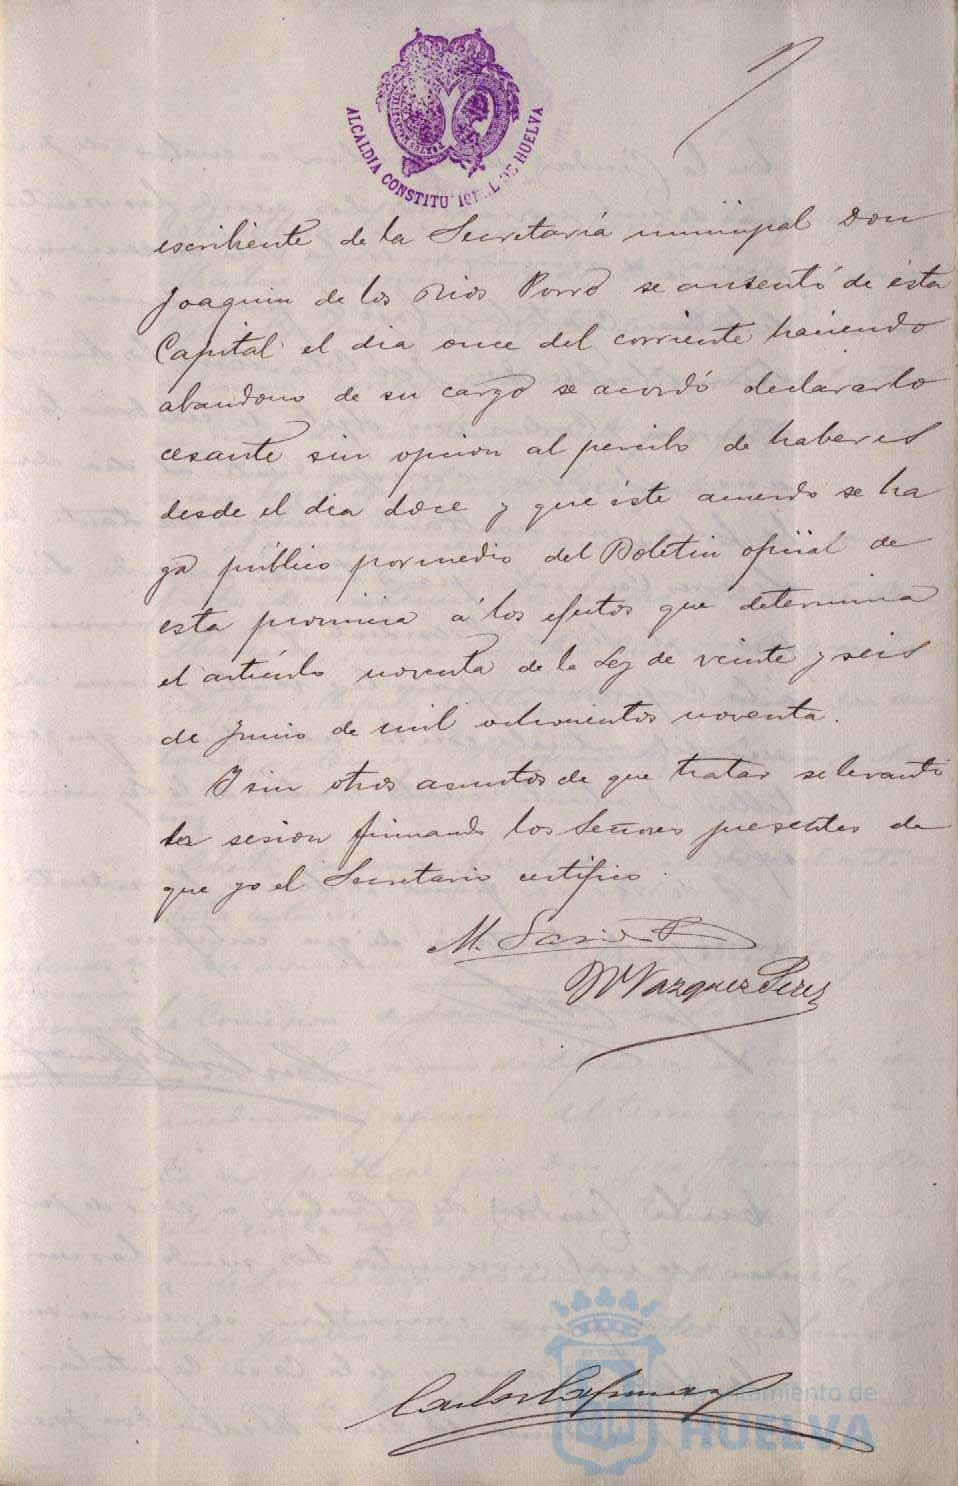 ALCALDIA CONSTITUCIONAL DE HUELVA
escribiente de la Secretaría municipal Don
Joaquin de los Rios Porro se ausentó de ésta
Capital el dia once del corriente haciendo
abandono de su cargo se acordó declararlo
cesante sin opcion al percibo de haberes
desde el dia doce y que éste acuerdo se ha
ga público por medio del Boletin oficial de
esta provincia á los efectos que determina
el artículo noventa de la Ley de veinte y seis
de Junio de mil ochocientos noventa.
Y sin otros asuntos de que tratar se levantó
la sesion firmando los Señores presentes de
que yo el Secretario certifico.
M.
Vazquez Perez
Carlos
ET TERRÆ
Ayuntamiento de
HUELVA